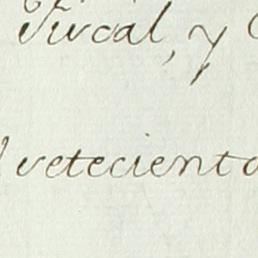 Fiscal, y
setecient